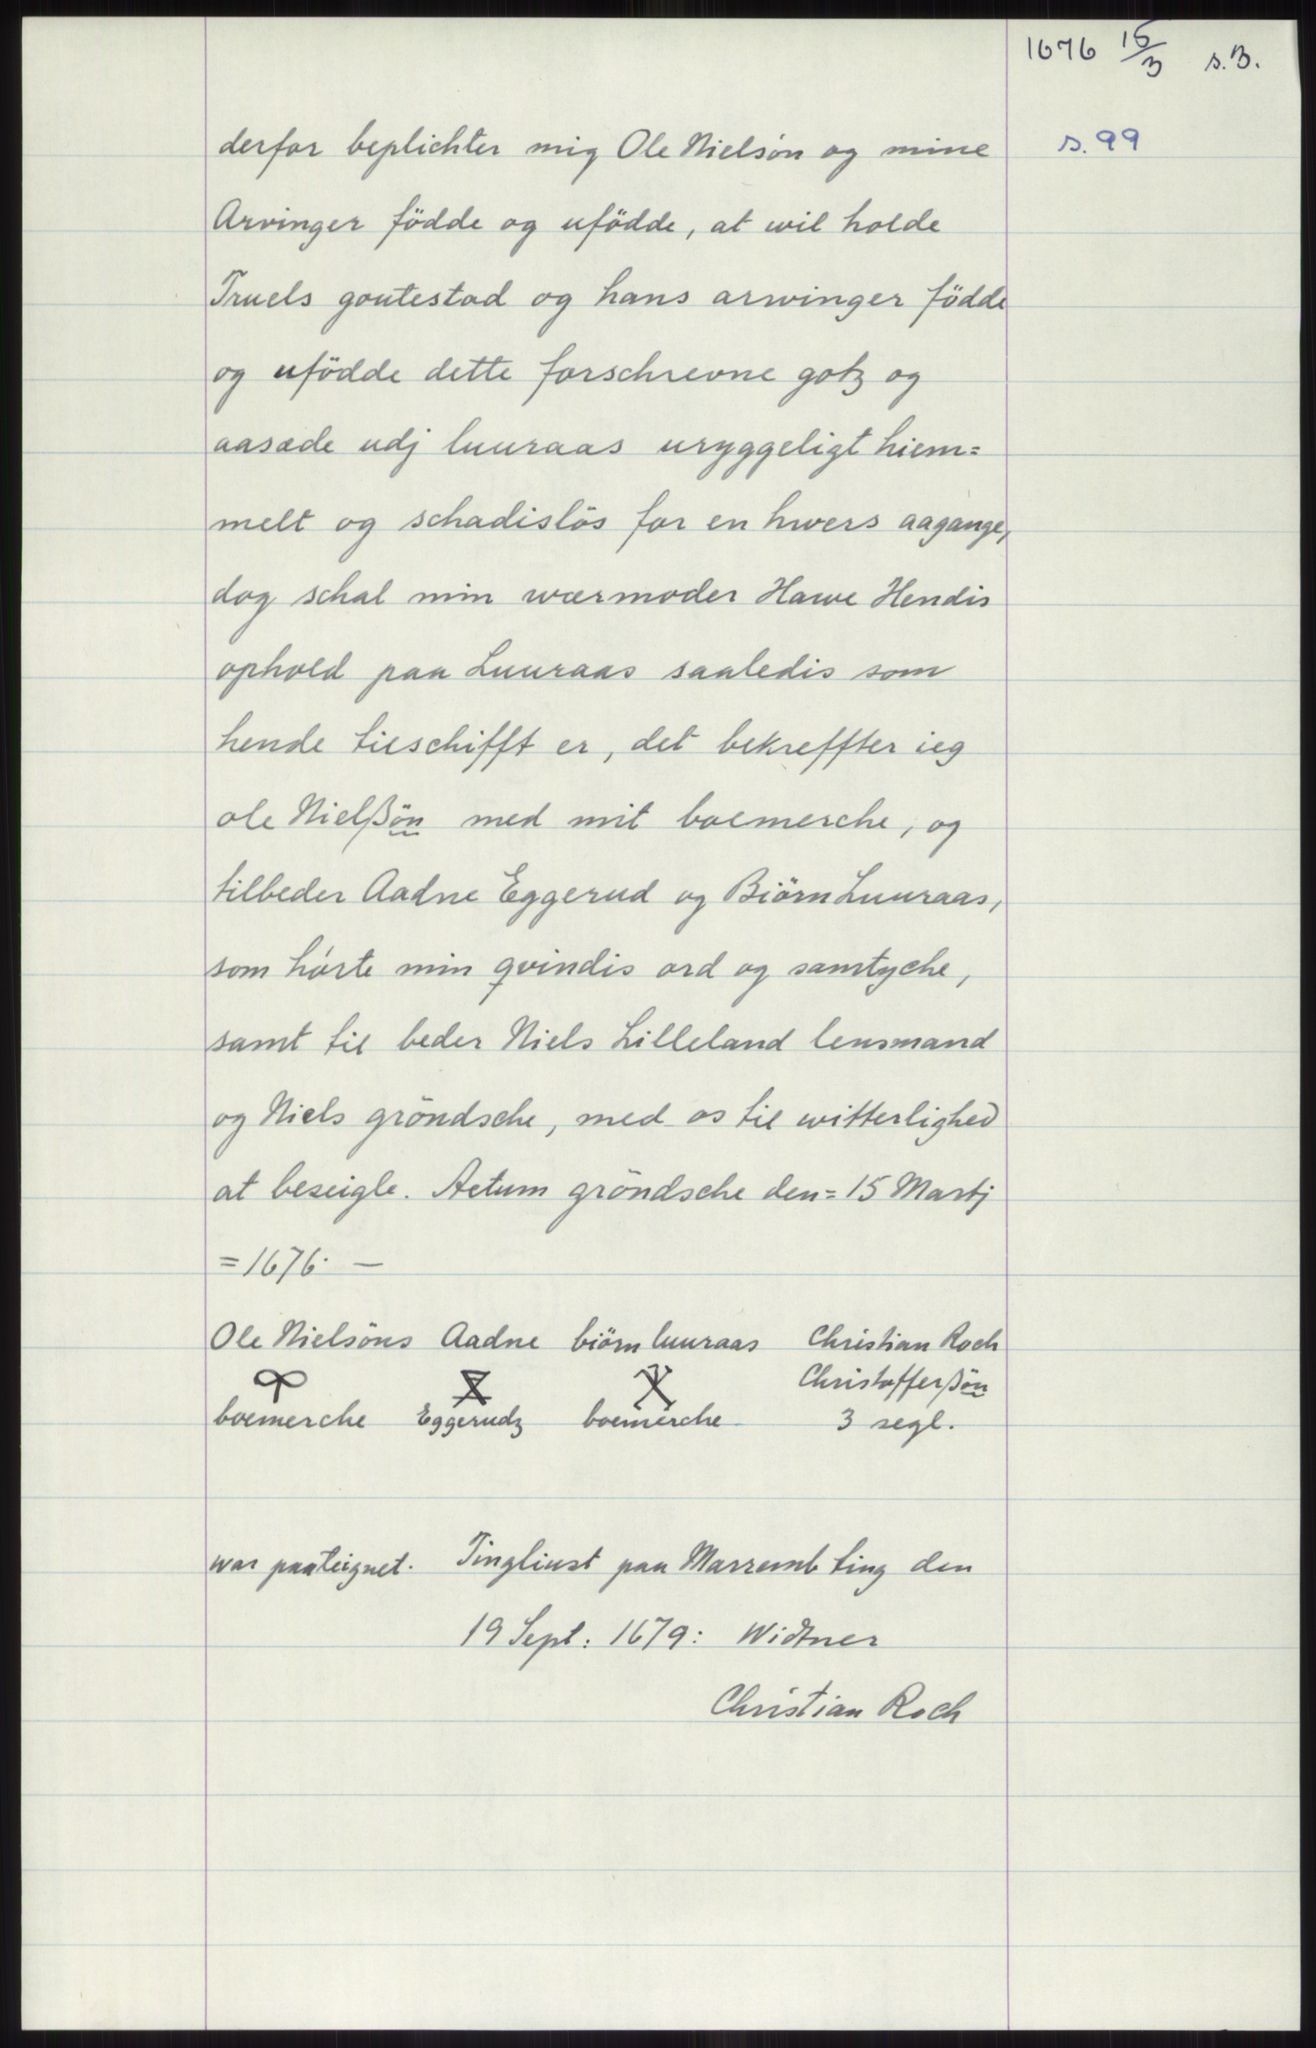 1676 15/3 s.3.
s. 99
derfor beplichter mig Ole Nielsön og mine
Arvinger födde og ufödde, at wil holde
Truels goutestad og hans arwinger födde
og ufödde dette forschrevne gotz og
aasæde udj luuraas uryggeligt hiem=
melt og schadislös for en hwers aagange,
dog schal min wærmoder Hawe Hendis
ophold paa Luuraas saaledis som
hende tilschifft er, det bekreffter ieg
ole Nielßön med mit boemerche, og
tilbeder Aadne Eggerud og Biörn Luuraas,
som hörte min qvindis ord og samtyche,
samt til beder Niels Lilleland lensmand
og Niels gröndsche, med os til witterlighed
at beseigle. Actum gröndsche den = 15 Martj
= 1676. —
Ole Nielsöns Aadne biörn luuraas Christian Roch
Christofferßön
boemerche Eggerudz boemerche 3 segl.
war paateignet. Tingliust paa Marremb ting den
19 Sept: 1679: Widtner
Christian Roch